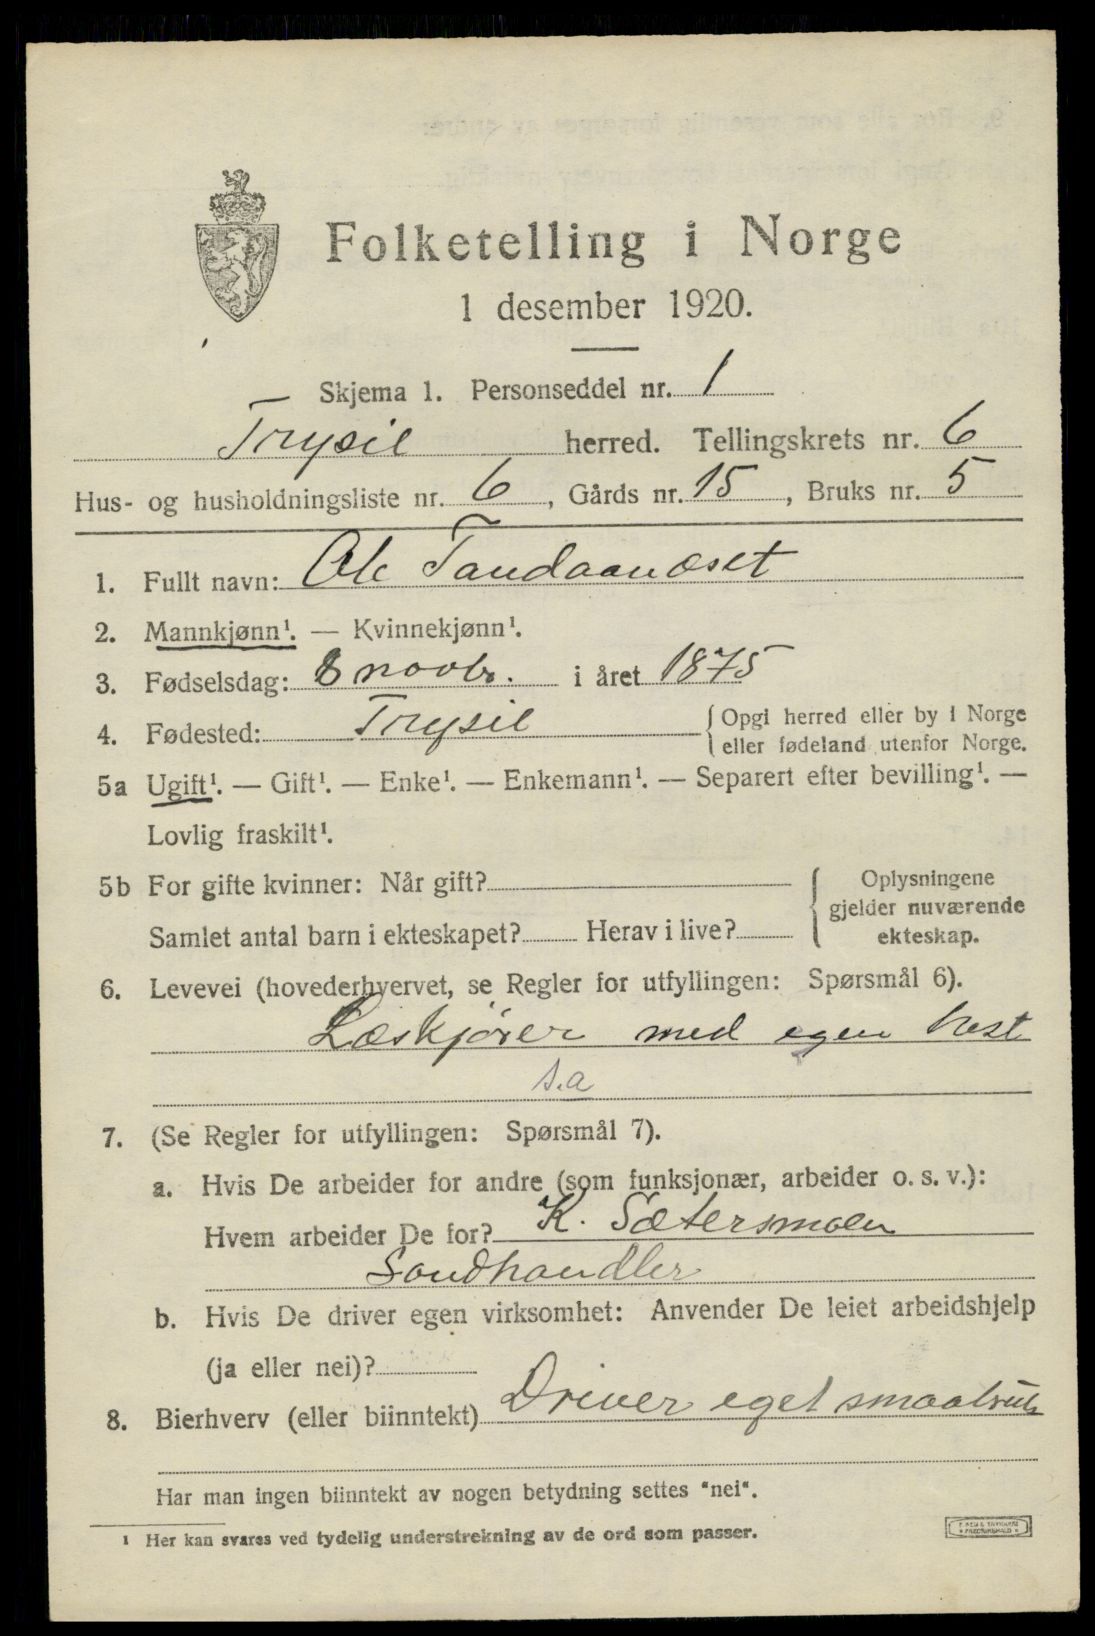 Folketelling i Norge
1 desember 1920.
Skjema 1. Personseddel nr. 1
Trysil herred. Tellingskrets nr. 6
Hus- og husholdningsliste nr. 6, Gårds nr. 15, Bruks nr. 5
1. Fullt navn: Ole Tandaanæset
2. Mannkjønn¹. — Kvinnekjønn¹.
3. Fødselsdag: 8 novbr. i året 1875
4. Fødested: Trysil { Opgi herred eller by i Norge
eller fødeland utenfor Norge.
5a Ugift¹. — Gift¹. — Enke¹. — Enkemann¹. — Separert efter bevilling¹. —
Lovlig fraskilt¹.
5b For gifte kvinner: Når gift? { Oplysningene
gjelder nuværende
Samlet antal barn i ekteskapet? Herav i live?
ekteskap.
6. Levevei (hovederhvervet, se Regler for utfyllingen: Spørsmål 6).
Læskjører med egen hest
s.a
7. (Se Regler for utfyllingen: Spørsmål 7).
a. Hvis De arbeider for andre (som funksjonær, arbeider o. s. v.):
Hvem arbeider De for? K. Sætersmoen
Landhandler
b. Hvis De driver egen virksomhet: Anvender De leiet arbeidshjelp
(ja eller nei)?
8. Bierhverv (eller biinntekt) Driver eget smaabruk
Har man ingen biinntekt av nogen betydning settes "nei".
¹ Her kan svares ved tydelig understrekning av de ord som passer.